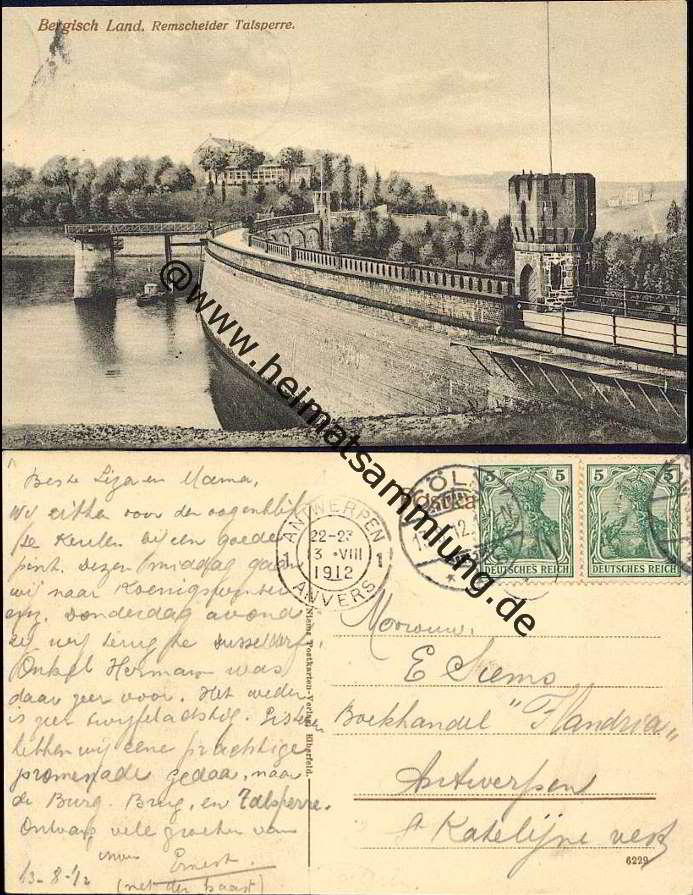 Bergisch Land. Remscheider Talsperre.
@www.heimatsammlung.de
Beste Liza en Mama,
Wij zitten voor den oogenblik
te Keulen bij een goede
pint. Dezen middag gaan
wij naar Koenigswinter
enz. Donderdag avond
terug te Dusseldorf.
Onkel Herman was
daar zeer voor. Het weder
is zeer twijfelachtig. Gisteren
hebben wij eene prachtige
promenade gedaan, naar
de Burg. Brug, en Talsperre.
Ontvang vele groeten van
Ernest.
13-8-12
(met der haast)
ANTWERPEN
1 22-23 1
13 · VIII
1912
ANVERS
CÖLN
5 5 5 5
DEUTSCHES REICH DEUTSCHES REICH
Postkarten-Verlag, Elberfeld.
Mevrouw,
E Siems
Boekhandel "Flandria"
Antwerpen
St Katelijne vest
6229